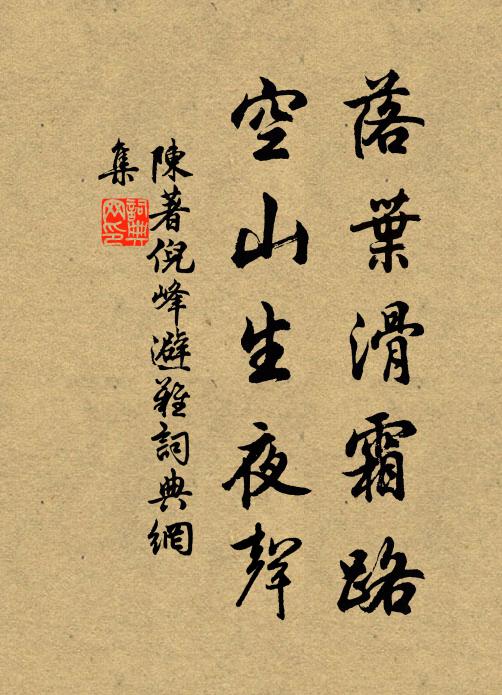 落葉滑霜路
空山生夜聲
陳著倪峰避難詞典網
集
詞典
网印